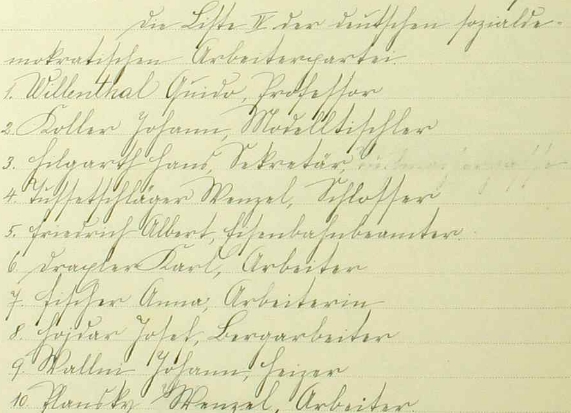 Die Liste IV der deutschen sozialde-
mokratischen Arbeiterpartei
1. Willenthal Guido, Professor
2. Koller Johann, Modelltischler
3. Hilgarth Hans, Sekretär,
4. Tussetschläger Wenzel, Schlosser
5. Friedrich Albert, Eisenbahnbeamter.
6. Drapler Karl, Arbeiter
7. Fischer Anna, Arbeiterin
8. Hojdar Josef, Bergarbeiter
9. Wallni Johann, Heizer
10. Plansky Wenzel, Arbeiter.